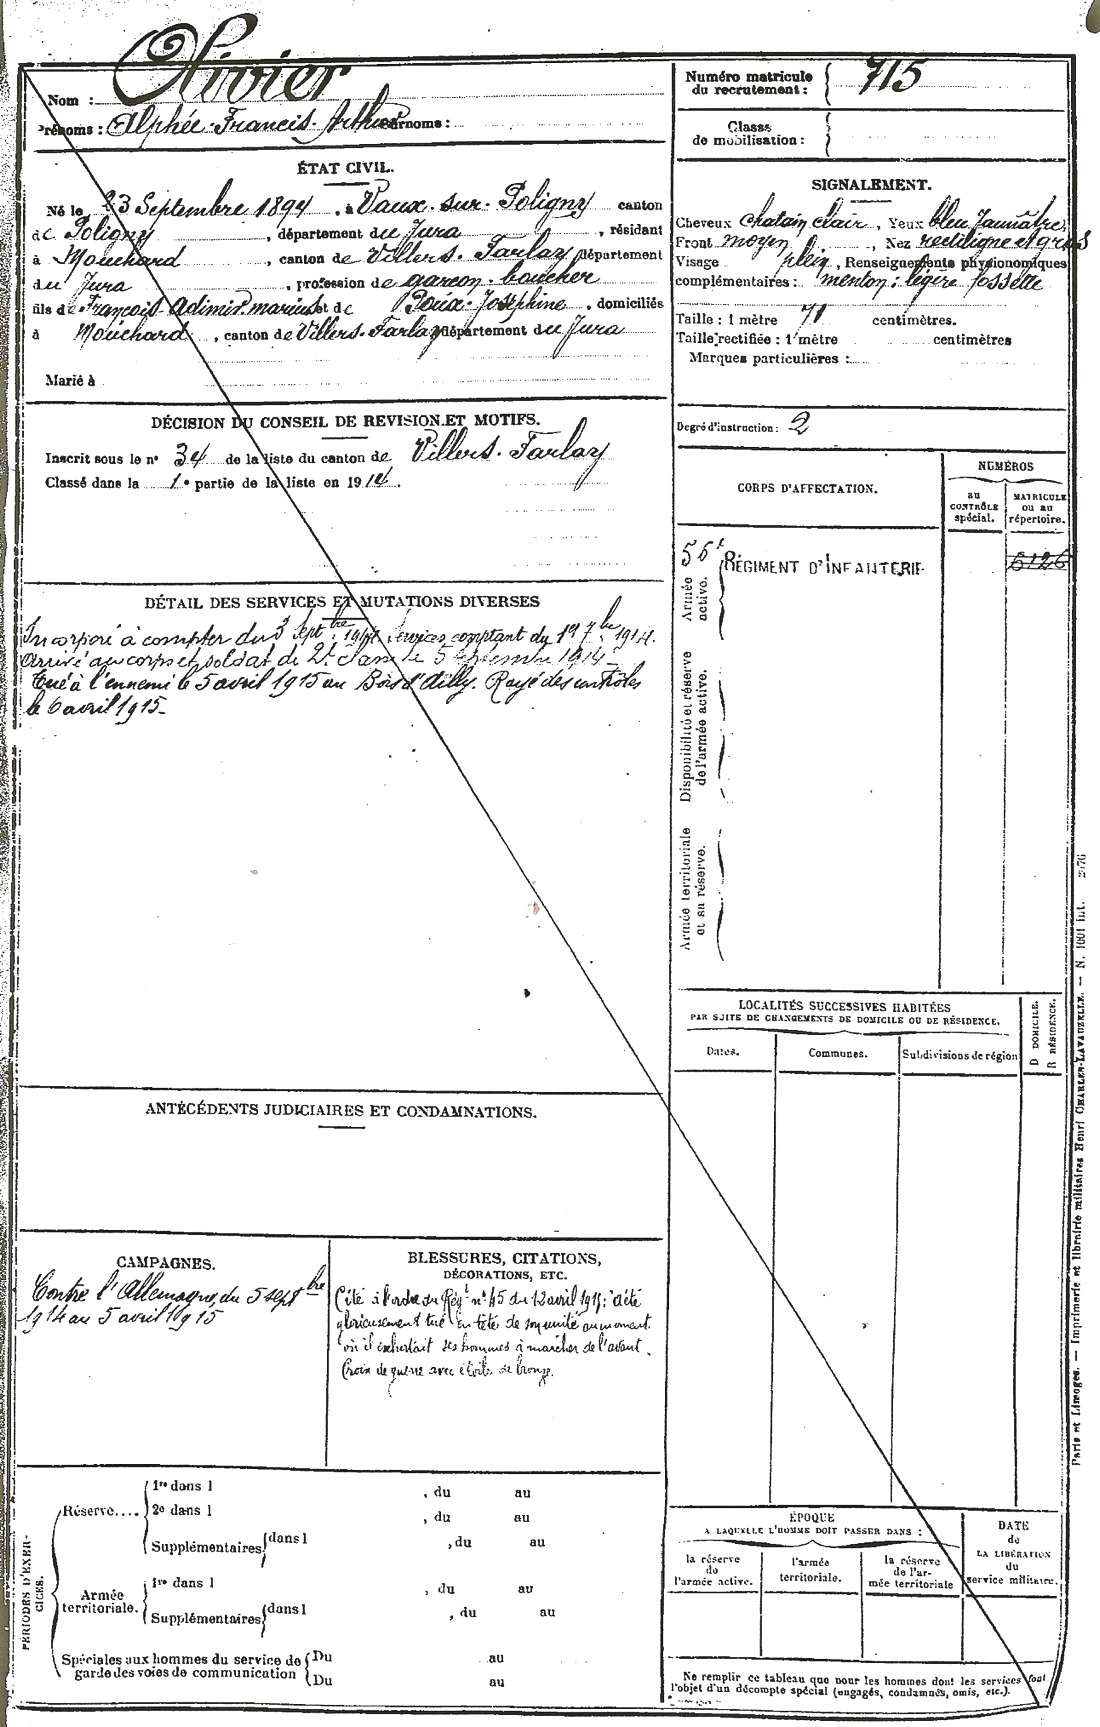 Nom : Olivier
Prénoms : Alphée-Francis-Arthur Surnoms :
ÉTAT CIVIL.
Né le 23 Septembre 1894, à Vaux-sur-Poligny canton
de Poligny, département du Jura, résidant
à Mouchard, canton de Villers-Farlay département
du Jura, profession de garçon boucher
fils de François-Adimir-Marius et de Poux-Joséphine. domiciliés
à Mouchard, canton de Villers-Farlay département du Jura
Marié à
DÉCISION DU CONSEIL DE REVISION ET MOTIFS.
Inscrit sous le nº 34 de la liste du canton de Villers-Farlay
Classé dans la 1e partie de la liste en 1914.
DÉTAIL DES SERVICES ET MUTATIONS DIVERSES
Incorporé à compter du 3 Septbre 1914, services comptant du 1er 7bre 1914.
Arrivé au corps et soldat de 2e classe le 5 septembre 1914
Tué à l'ennemi le 5 avril 1915 au Bois d'Ailly. Rayé des contrôles
le 6 avril 1915-
ANTÉCÉDENTS JUDICIAIRES ET CONDAMNATIONS.
CAMPAGNES.
Contre l'Allemagne, du 5 septbre
1914 au 5 avril 1915
BLESSURES, CITATIONS,
DÉCORATIONS, ETC.
Cité à l'ordre du Régt nº 45 du 12 avril 1915 : "a été
glorieusement tué en tête de son unité au moment
où il exhortait ses hommes à marcher de l'avant.
Croix de guerre avec étoile de bronze.
PÉRIODES D'EXERCICES.
Réserve....
1re dans l , du au
2e dans l , du au
Supplémentaires dans l , du au
Armée
territoriale.
1re dans l , du au
Supplémentaires dans l , du au
Spéciales aux hommes du service de
garde des voies de communication
Du au
Du au
Numéro matricule
du recrutement : 715
Classe
de mobilisation :
SIGNALEMENT.
Cheveux chatain clair, Yeux bleu jaunâtre
Front moyen, Nez rectiligne et gros
Visage plein, Renseignements physionomiques
complémentaires : menton : légère fossette
Taille : 1 mètre 71 centimètres.
Taille rectifiée : 1 mètre centimètres
Marques particulières :
Degré d'instruction : 2
CORPS D'AFFECTATION.
NUMÉROS
au
CONTRÔLE
spécial.
MATRICULE
ou au
répertoire.
Armée
active.
56e RÉGIMENT D'INFANTERIE
6126
Disponibilité et réserve
de l'armée active.
Armée territoriale
et sa réserve.
LOCALITÉS SUCCESSIVES HABITÉES
PAR SUITE DE CHANGEMENTS DE DOMICILE OU DE RÉSIDENCE.
Dates.
Communes.
Subdivisions de région
D DOMICILE.
R RÉSIDENCE.
ÉPOQUE
A LAQUELLE L'HOMME DOIT PASSER DANS :
la réserve
de
l'armée active.
l'armée
territoriale.
la réserve
de l'ar-
mée territoriale
DATE
de
LA LIBÉRATION
du
service militaire.
Ne remplir ce tableau que pour les hommes dont les services font
l'objet d'un décompte spécial (engagés, condamnés, omis, etc.).
Paris et Limoges. — Imprimerie et librairie militaires Henri CHARLES-LAVAUZELLE. — N. 1601 Int.